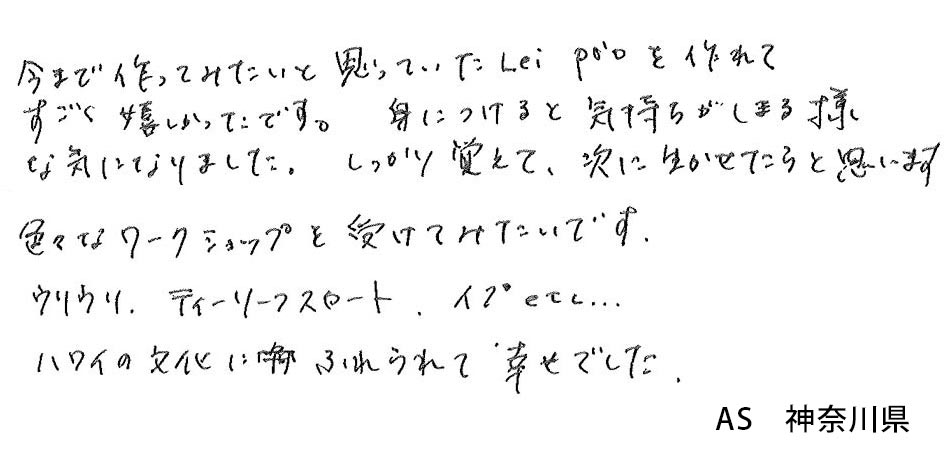 今まで作ってみたいと思っていたLei poʻoを作れて
すごく嬉しかったです。 身につけると気持ちがしまる様
な気になりました。 しっかり覚えて、次に生かせたらと思います
色々なワークショップを受けてみたいです.
ウリウリ. ティーリーフスカート. イプetc...
ハワイの文化に ふれられて 幸せでした.
AS 神奈川県